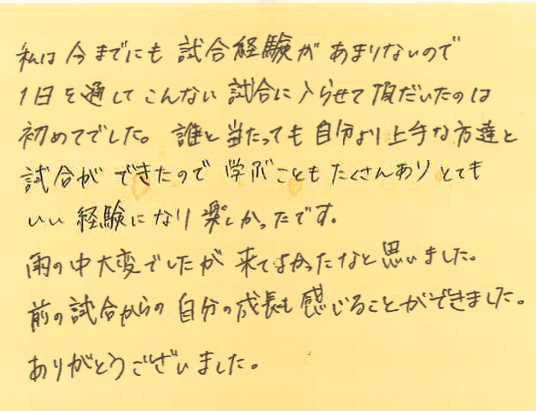 私は今までにも試合経験があまりないので
1日を通してこんない試合に入らせて頂だいたのは
初めてでした。誰と当たっても自分より上手な方達と
試合ができたので学ぶこともたくさんありとても
いい経験になり楽しかったです。
雨の中大変でしたが来てよかったなと思いました。
前の試合からの自分の成長も感じることができました。
ありがとうございました。